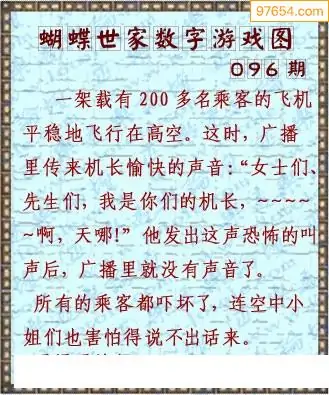 97654.com
蝴蝶世家数字游戏图
096 期
一架载有 200 多名乘客的飞机
平稳地飞行在高空。这时,广播
里传来机长愉快的声音:“女士们、
先生们,我是你们的机长,~~~~~
~啊,天哪!”他发出这声恐怖的叫
声后,广播里就没有声音了。
所有的乘客都吓坏了,连空中小
姐们也害怕得说不出话来。